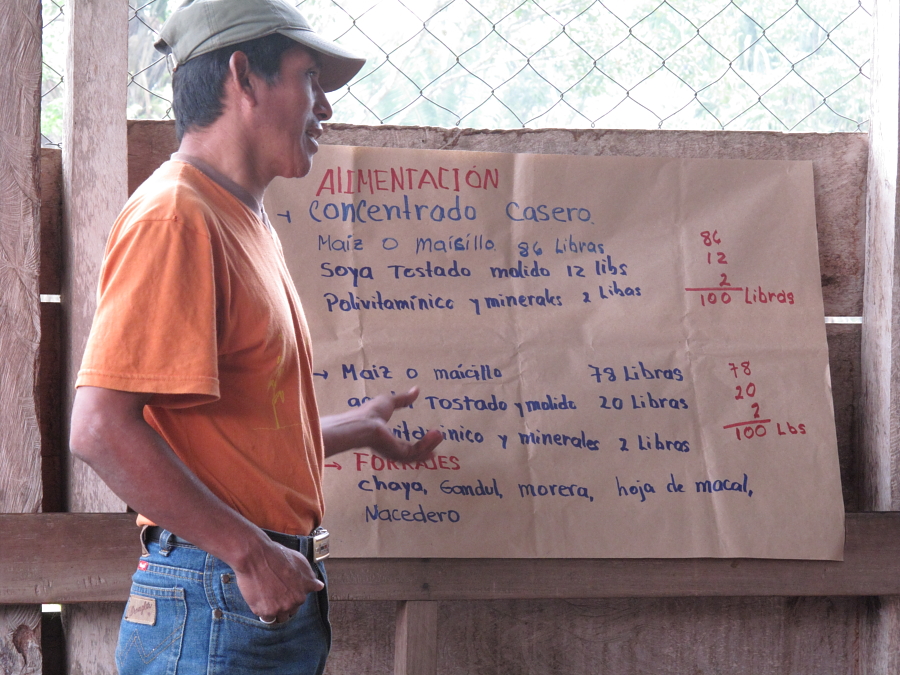 AlIMENTACIÓN
→ concentrado casero.
Maíz o maicillo 86 Libras 86
Soya Tostado molido 12 libs 12
Polivitamínico y minerales 2 Libas 2
100 Libras
→ Maiz o maicillo 78 Libras 78
Tostado y molido 20 Libras 20
y minerales 2 Libros 2
100 Lbs
→ FORRAJES
chaya, Gandul, morera, hoja de macal,
Nacedero